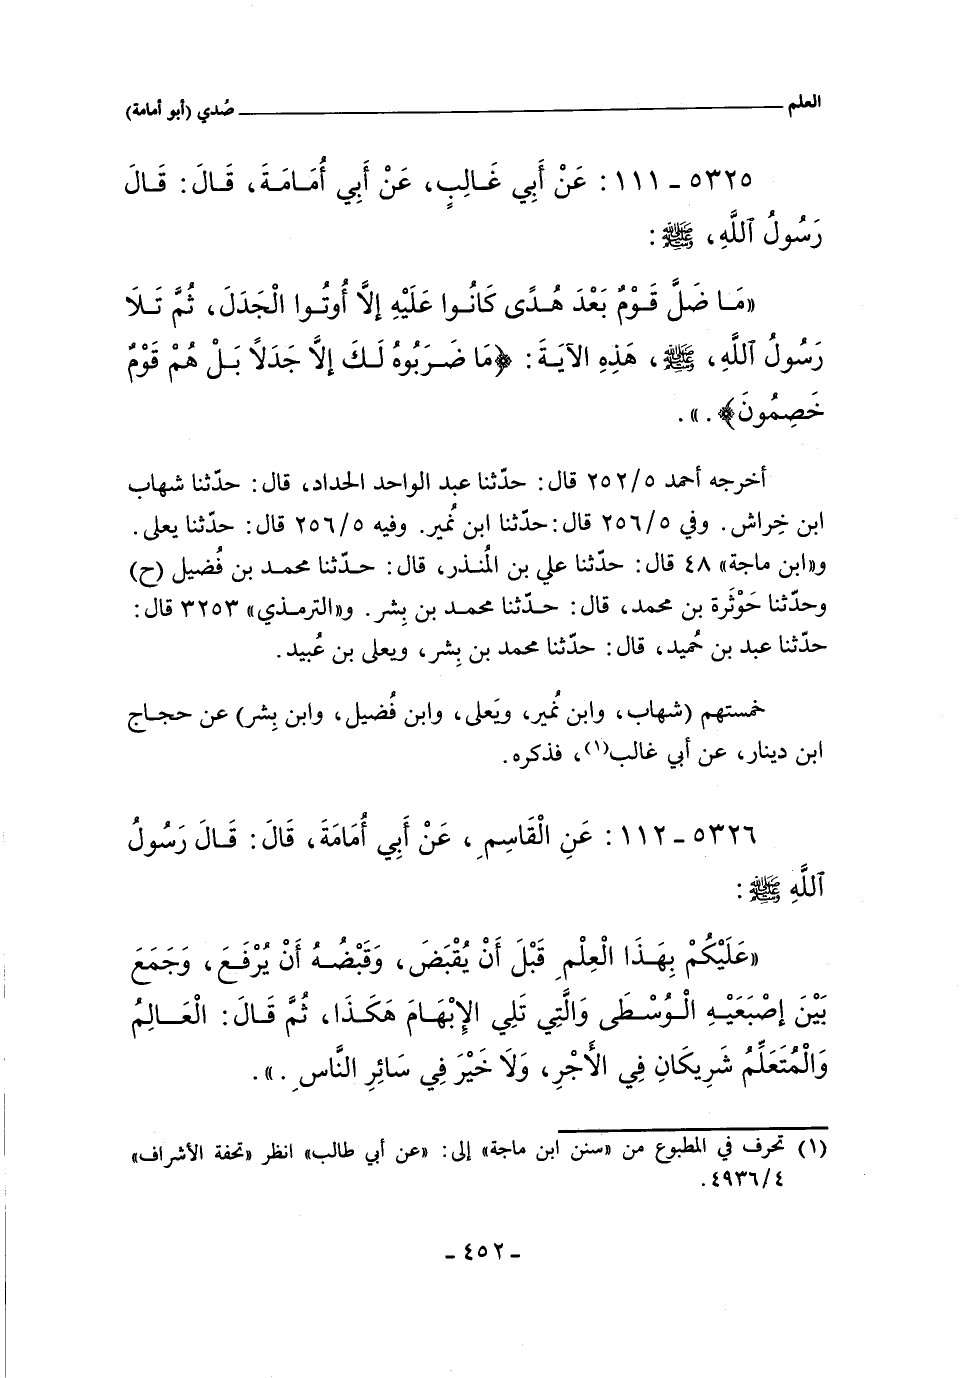 العلم ــــــــ صُدي (أبو أمامة)
٥٣٢٥ - ١١١ : عَنْ أَبِي غَالِبٍ، عَنْ أَبِي أُمَامَةَ، قَالَ: قَالَ
رَسُولُ ٱللَّهِ، ﷺ:
«مَا ضَلَّ قَوْمٌ بَعْدَ هُدًى كَانُوا عَلَيْهِ إِلاَّ أُوتُوا الْجَدَلَ، ثُمَّ تَلَا
رَسُولُ ٱللَّهِ، ﷺ، هَذِهِ الآيَةَ: ﴿مَا ضَرَبُوهُ لَكَ إِلاَّ جَدَلاً بَلْ هُمْ قَوْمٌ
خَصِمُونَ﴾.».
أخرجه أحمد ٢٥٢/٥ قال: حدّثنا عبد الواحد الحداد، قال: حدّثنا شهاب
ابن خِراش. وفي ٢٥٦/٥ قال: حدّثنا ابن نُمير. وفيه ٢٥٦/٥ قال: حدّثنا يعلى.
و«ابن ماجة» ٤٨ قال: حدّثنا علي بن المُنذر، قال: حدّثنا محمد بن فُضيل (ح)
وحدّثنا حَوْثَرة بن محمد، قال: حدّثنا محمد بن بِشر. و«الترمذي» ٣٢٥٣ قال:
حدّثنا عبد بن حُميد، قال: حدّثنا محمد بن بِشر، ويعلى بن عُبيد.
خمستهم (شهاب، وابن نُمير، ويَعلى، وابن فُضيل، وابن بِشر) عن حجاج
ابن دينار، عن أبي غالب(١)، فذكره.
٥٣٢٦ - ١١٢ : عَنِ الْقَاسِمِ، عَنْ أَبِي أُمَامَةَ، قَالَ: قَالَ رَسُولُ
ٱللَّهِ ﷺ:
«عَلَيْكُمْ بِهَذَا الْعِلْمِ قَبْلَ أَنْ يُقْبَضَ، وَقَبْضُهُ أَنْ يُرْفَعَ، وَجَمَعَ
بَيْنَ إِصْبَعَيْهِ الْوُسْطَى وَالَّتِي تَلِي الإِبْهَامَ هَكَذَا، ثُمَّ قَالَ: الْعَالِمُ
وَالْمُتَعَلِّمُ شَرِيكَانِ فِي الأَجْرِ، وَلَا خَيْرَ فِي سَائِرِ النَّاسِ.».
(١) تحرف في المطبوع من «سنن ابن ماجة» إلى: «عن أبي طالب» انظر «تحفة الأشراف»
٤٩٣٦/٤.
- ٤٥٢ -